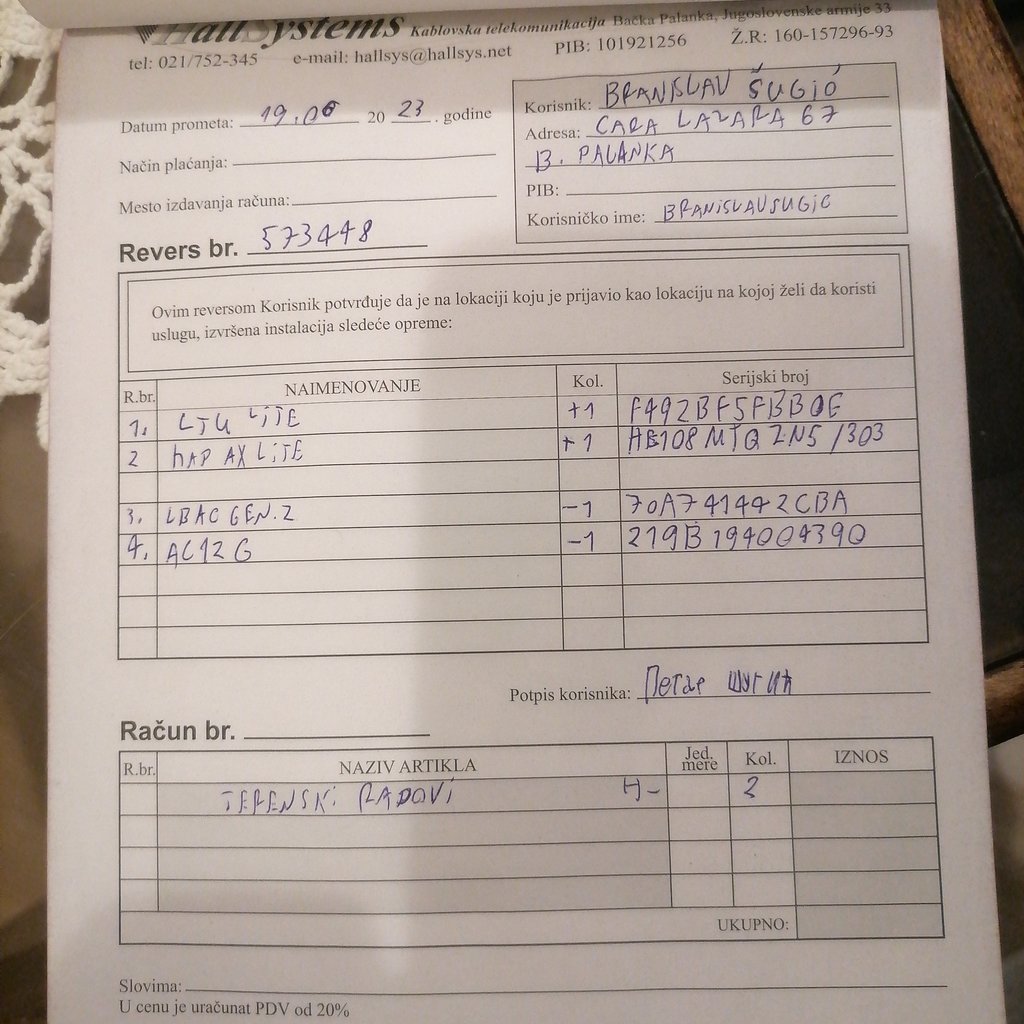 HallSystems Kablovska telekomunikacija Bačka Palanka, Jugoslovenske armije 33
tel: 021/752-345 e-mail: hallsys@hallsys.net PIB: 101921256 Ž.R: 160-157296-93
Datum prometa: 19.06 20 23. godine
Način plaćanja:
Mesto izdavanja računa:
Korisnik: BRANISLAV ŠUGIĆ
Adresa: CARA LAZARA 67
B. PALANKA
PIB:
Korisničko ime: BRANISLAVSUGIC
Revers br. 573448
Ovim reversom Korisnik potvrđuje da je na lokaciji koju je prijavio kao lokaciju na kojoj želi da koristi
uslugu, izvršena instalacija sledeće opreme:
R.br. NAIMENOVANJE Kol. Serijski broj
1. LTU LITE +1 F492BF5FBB0E
2 HAP AX LITE +1 HE108MTQ2N5/303
3. LBAC GEN.2 -1 70A741442CBA
4. AC12G -1 219B194004390
Potpis korisnika: Петар Шугић
Račun br.
R.br. NAZIV ARTIKLA Jed. mere Kol. IZNOS
TERENSKI RADOVI H- 2
UKUPNO:
Slovima:
U cenu je uračunat PDV od 20%